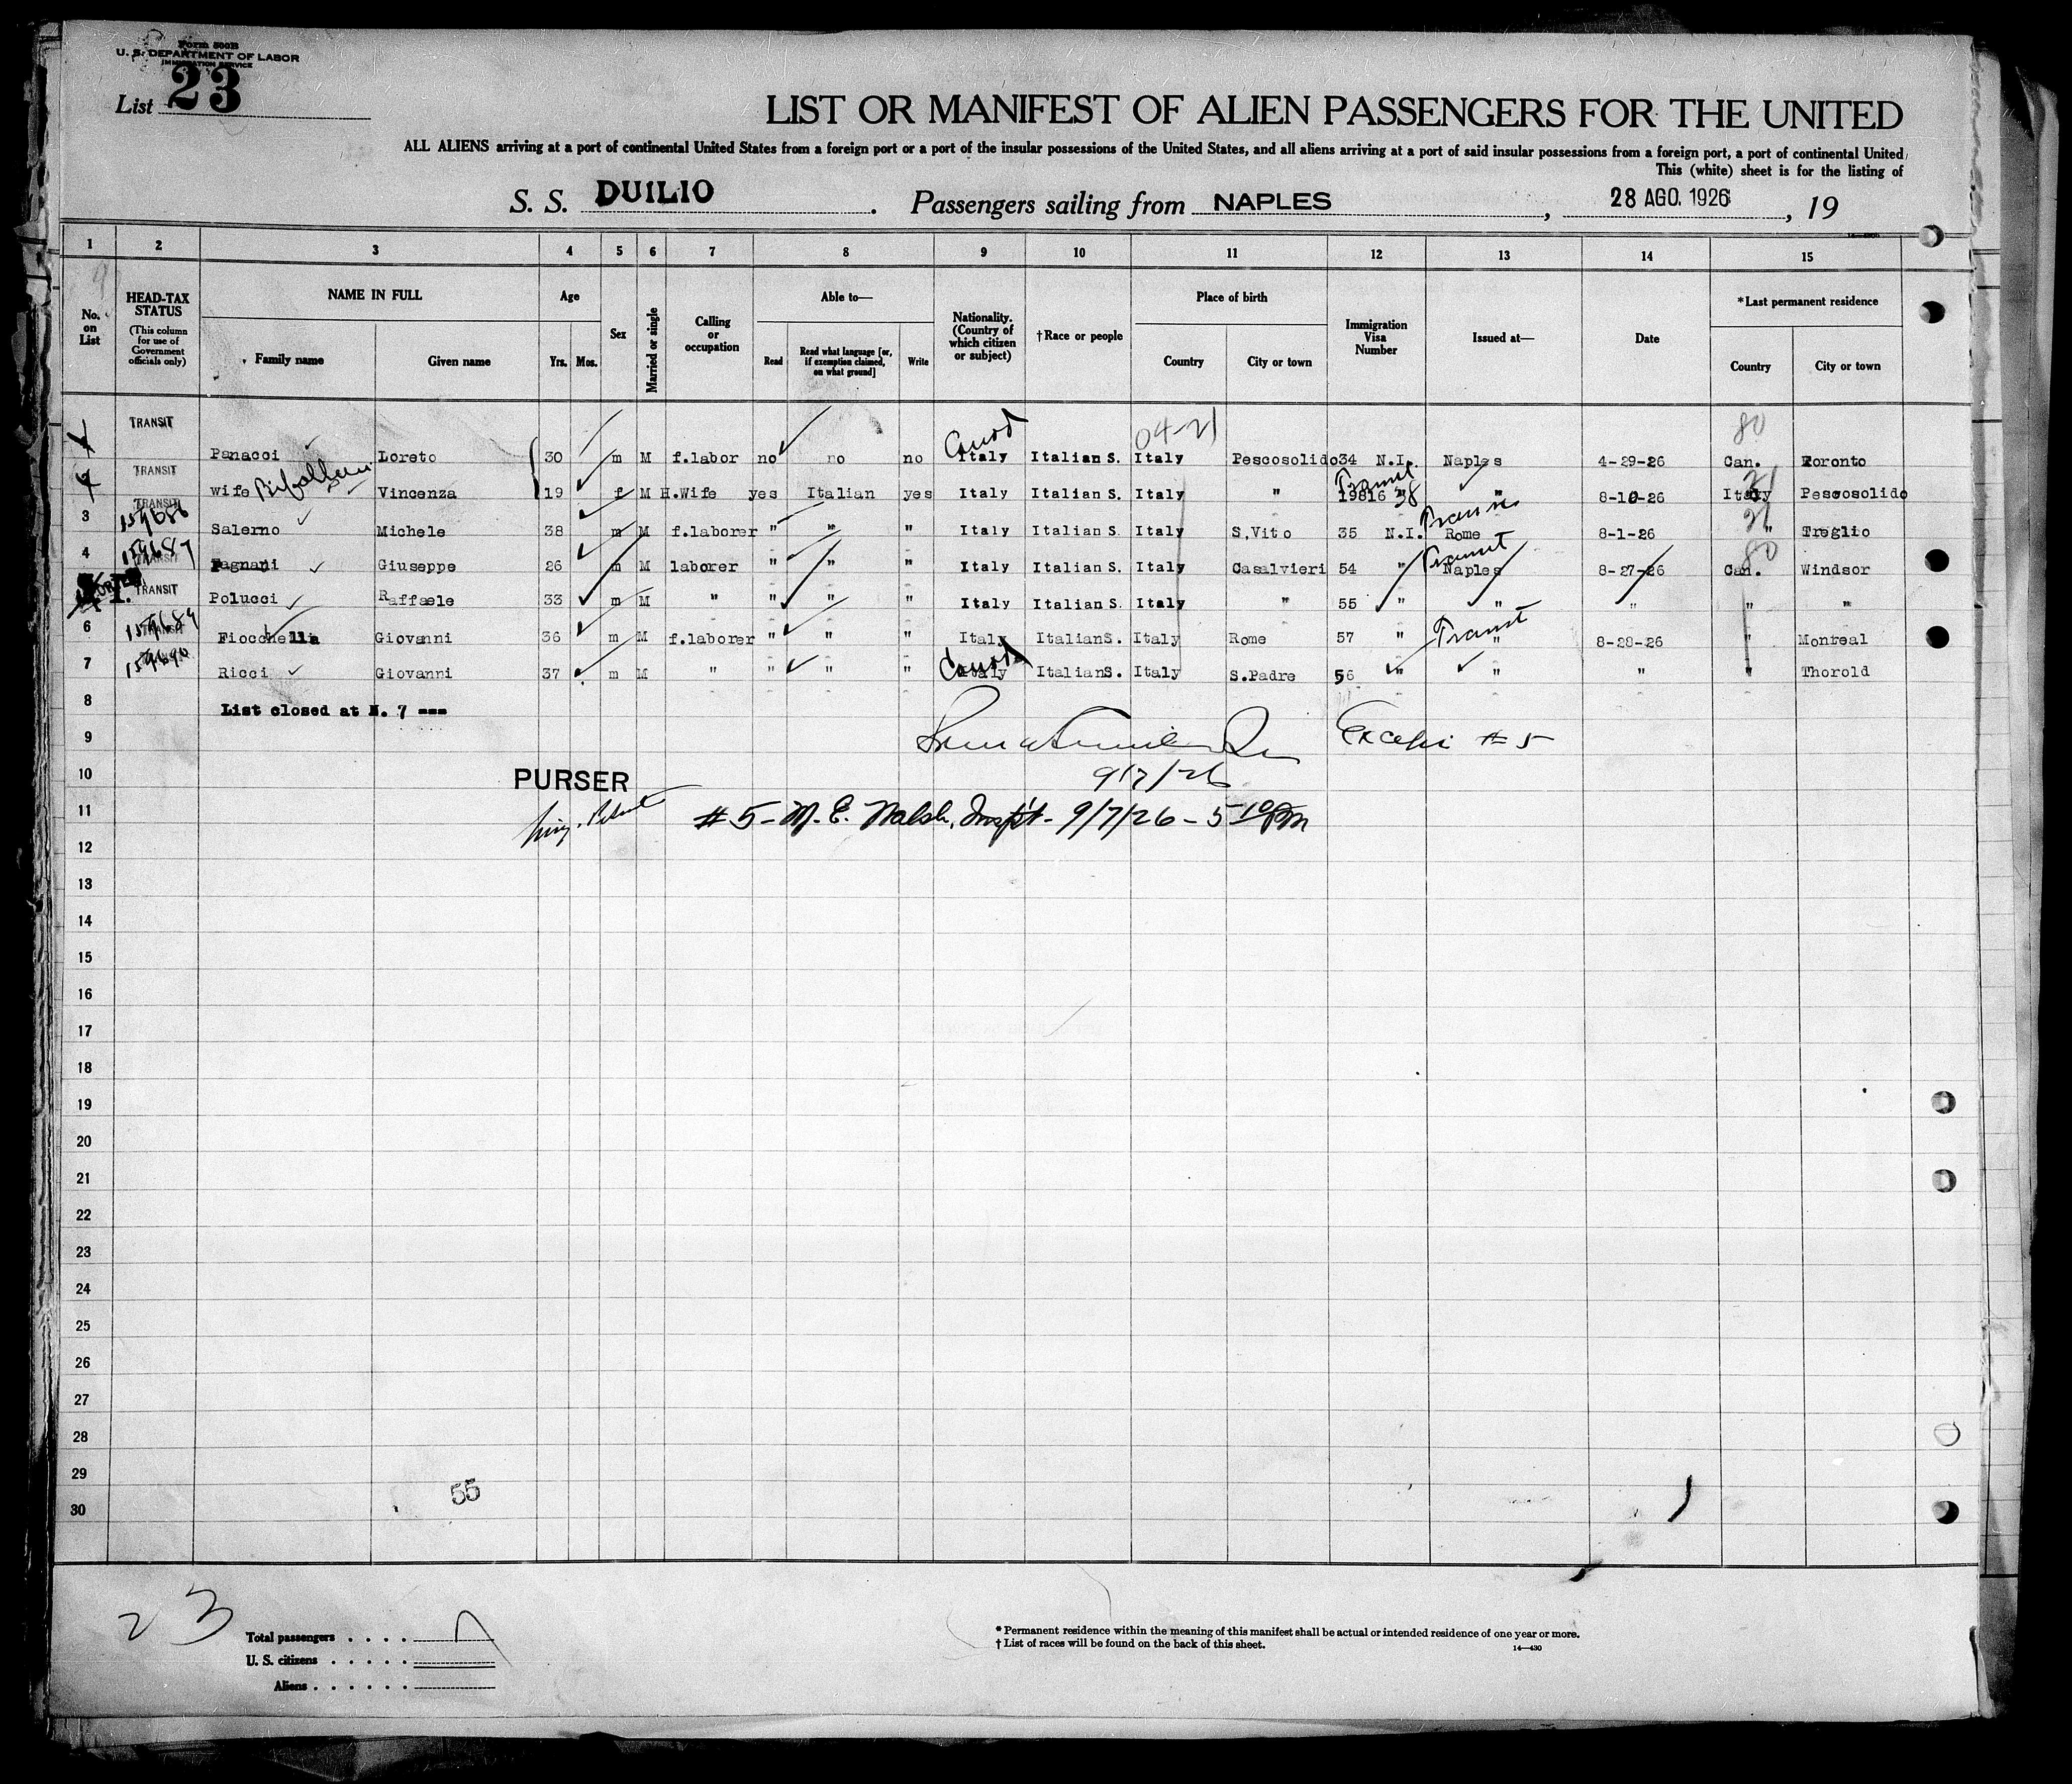 Form 500B
U. S. DEPARTMENT OF LABOR
IMMIGRATION SERVICE
List 23
LIST OR MANIFEST OF ALIEN PASSENGERS FOR THE UNITED
ALL ALIENS arriving at a port of continental United States from a foreign port or a port of the insular possessions of the United States, and all aliens arriving at a port of said insular possessions from a foreign port, a port of continental United
This (white) sheet is for the listing of
S. S. DUILIO. Passengers sailing from NAPLES, 28 AGO. 1926, 19
1 2 3 4 5 6 7 8 9 10 11 12 13 14 15
No. on List
HEAD-TAX STATUS (This column for use of Government officials only)
NAME IN FULL
Family name Given name
Age
Yrs. Mos.
Sex
Married or single
Calling or occupation
Able to—
Read Read what language [or, if exemption claimed, on what ground] Write
Nationality. (Country of which citizen or subject)
†Race or people
Place of birth
Country City or town
Immigration Visa Number
Issued at—
Date
*Last permanent residence
Country City or town
TRANSIT 04-21 80
Panacci Loreto 30 m M f.labor no no no Italy Italian S. Italy Pescosolido 34 N.I. Naples 4-29-26 Can. Toronto
TRANSIT Transit 21
wife Vincenza 19 f M H.Wife yes Italian yes Italy Italian S. Italy " 19816 " " 8-10-26 Italy Pescosolido
TRANSIT Transit 21
3 159686 Salerno Michele 38 m M f.laborer " " " Italy Italian S. Italy S.Vito 35 N.I. Rome 8-1-26 " Treglio
TRANSIT Transit 80
4 159687 Fagnani Giuseppe 26 m M laborer " " " Italy Italian S. Italy Casalvieri 54 " Naples 8-27-26 Can. Windsor
TRANSIT
Polucci Raffaele 33 m M " " " " Italy Italian S. Italy " 55 " " " " "
TRANSIT Transit
6 159689 Fiocchella Giovanni 36 m M f.laborer " " " Italy ItalianS. Italy Rome 57 " " 8-28-26 " Montreal
7 159690 Ricci Giovanni 37 m M " " " " Italy ItalianS. Italy S.Padre 56 " " " " Thorold
8 List closed at N. 7 ---
9 Except # 5
10 PURSER 9/7/26
11 # 5 - M. E. Walsh, Insp't - 9/7/26 - 5 10 pm
12
13
14
15
16
17
18
19
20
21
22
23
24
25
26
27
28
29
30
55
23
Total passengers . . . . 7
U. S. citizens . . . . .
Aliens . . . . . .
* Permanent residence within the meaning of this manifest shall be actual or intended residence of one year or more.
† List of races will be found on the back of this sheet.
14—430